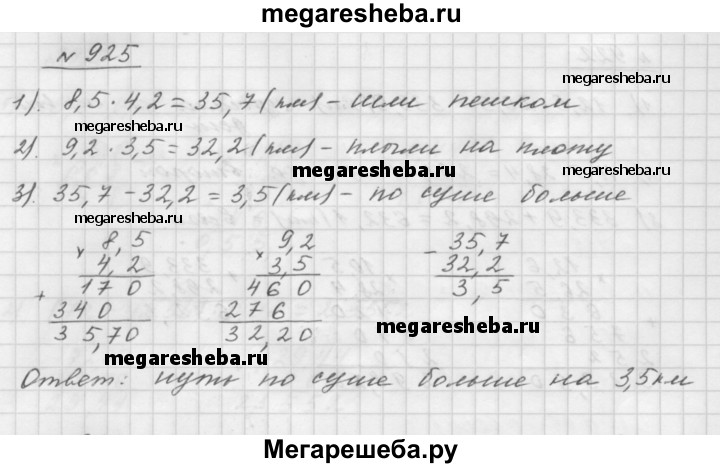 megaresheba.ru
№ 925
megaresheba.ru
1). 8,5 · 4,2 = 35,7 (км) – шли пешком
megaresheba.ru
2). 9,2 · 3,5 = 32,2 (км) – плыли на плоту
megaresheba.ru
3). 35,7 – 32,2 = 3,5 (км) – по суше больше
× 8,5 × 9,2 – 35,7
4,2 3,5 32,2
+ 170 460 3,5
340 276
35,70 32,20
megaresheba.ru
megaresheba.ru
Ответ: путь по суше больше на 3,5 км
Мегарешеба.ру